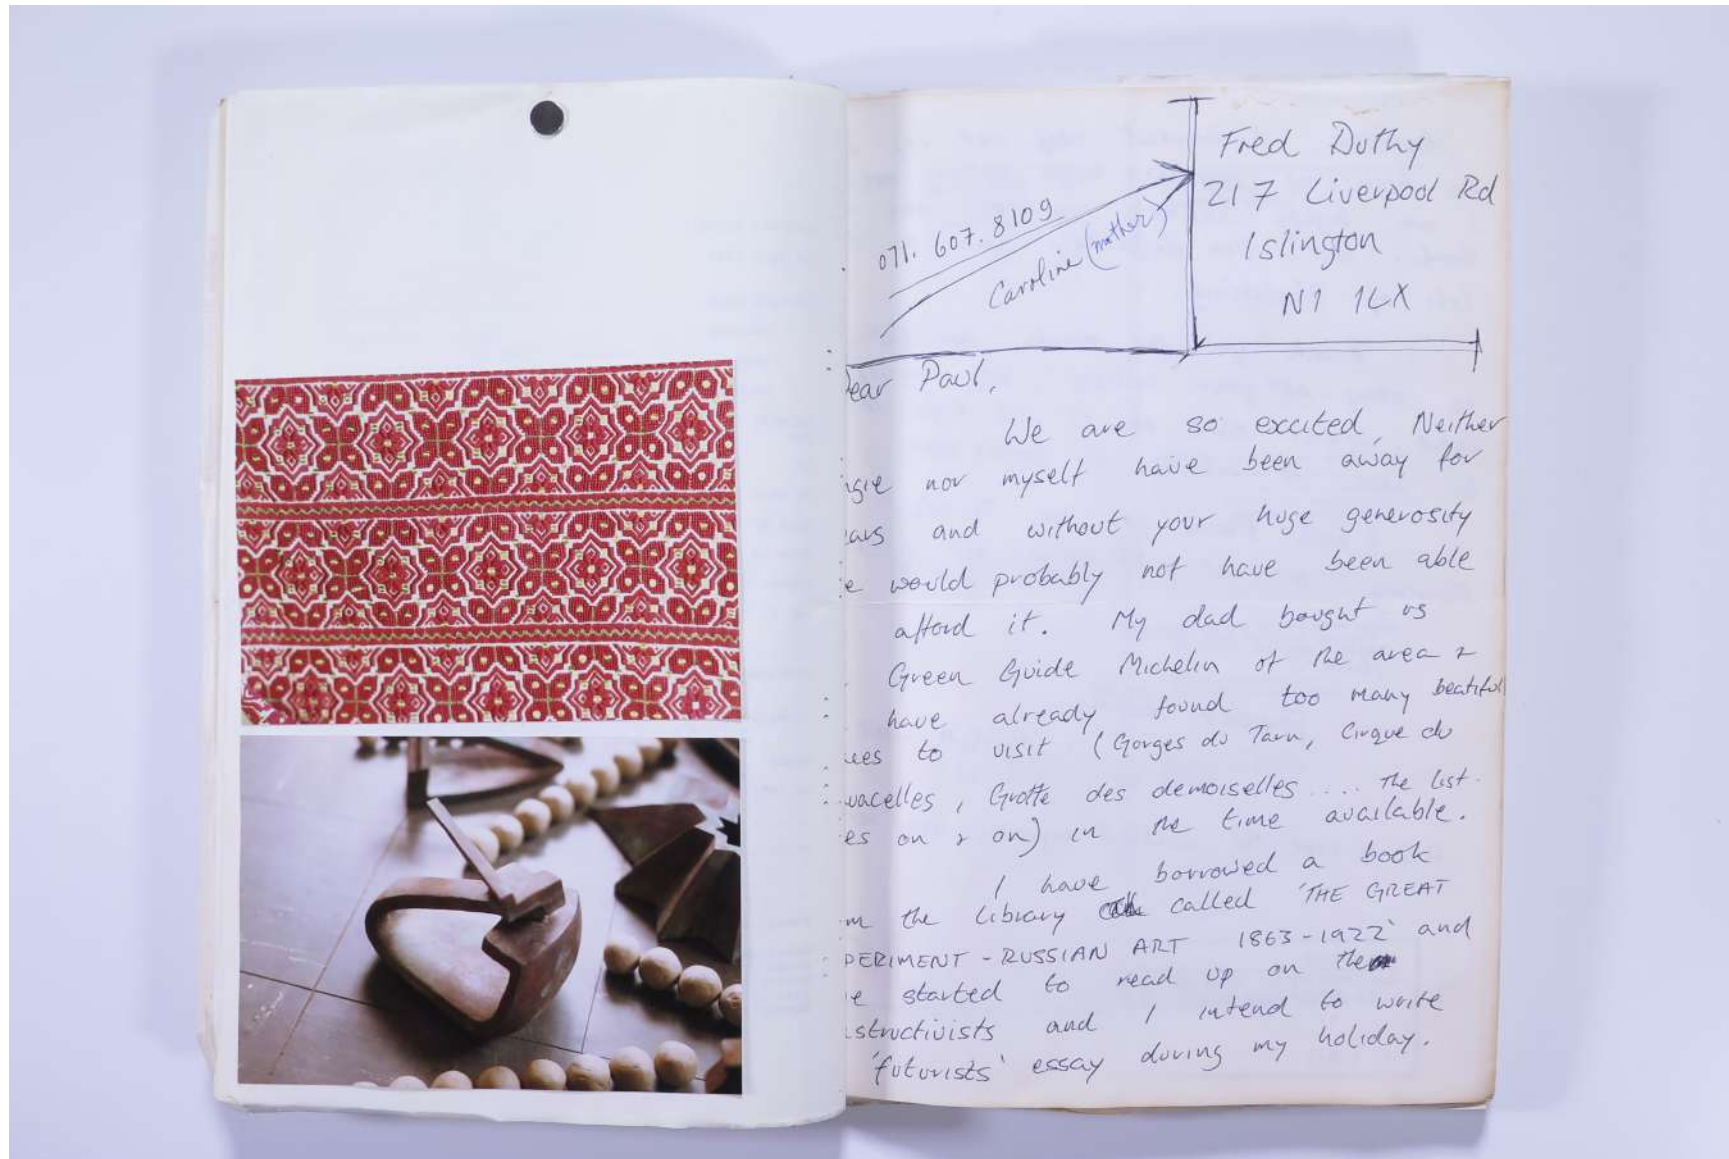 Fred Duthy
217 Liverpool Rd
Islington
N1 1LX
071. 607. 8109
Caroline (mother)
ear Paul,
We are so excited, Neither
gie nor myself have been away for
ars and without your huge generosity
e would probably not have been able
afford it. My dad bought us
Green Guide Michelin of the area &
have already found too many beatiful
ces to visit (Gorges du Tarn, Cirque du
vacelles, Grotte des demoiselles .... the list
es on & on) in the time available.
I have borrowed a book
m the library called 'THE GREAT
PERIMENT - RUSSIAN ART 1863-1922' and
e started to read up on the
structivists and I intend to write
'futurists' essay during my holiday.